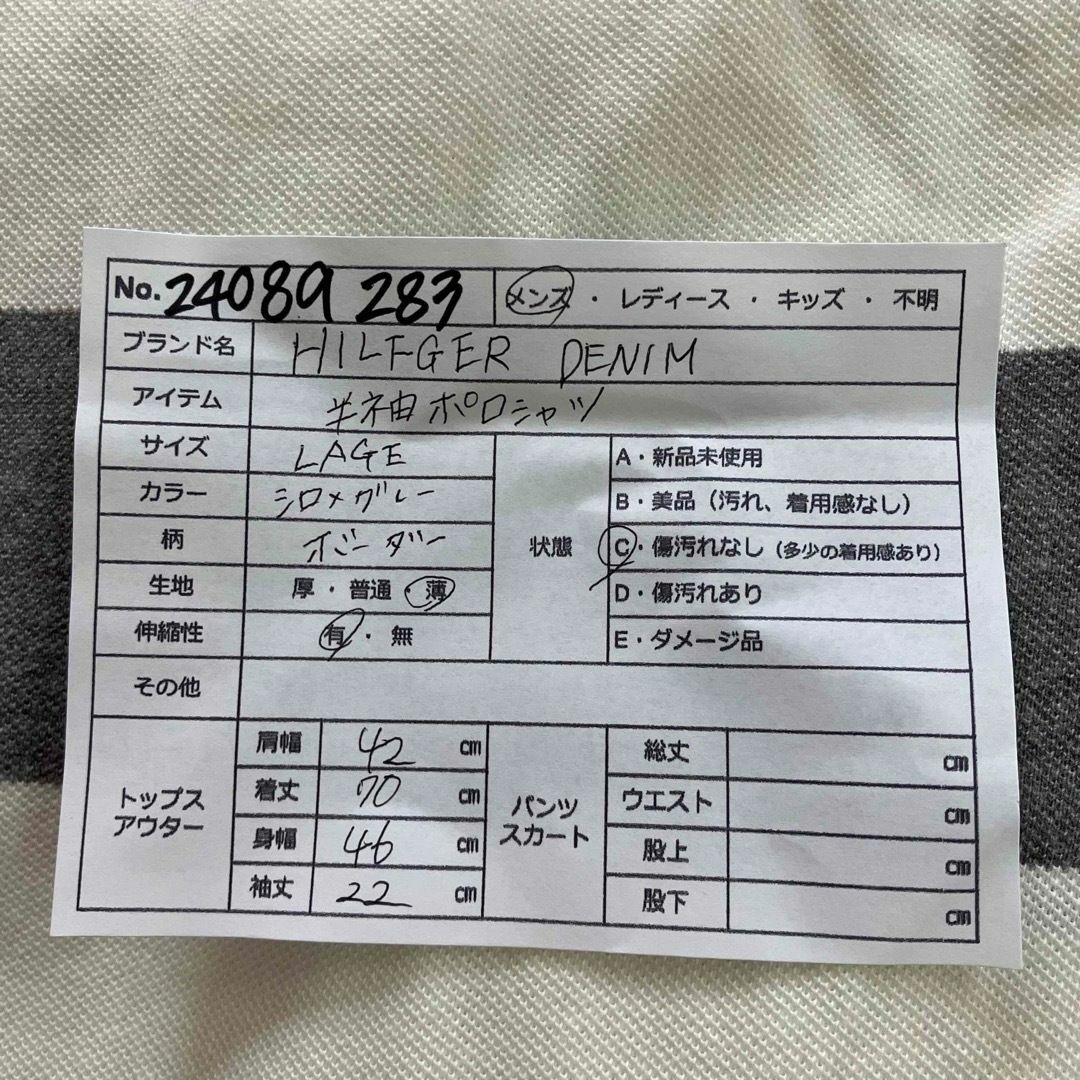 No. 24089 283 メンズ・レディース・キッズ・不明
ブランド名 HILFGER DENIM
アイテム 半袖ポロシャツ
サイズ LAGE
カラー シロ×グレー
柄 ボーダー
生地 厚・普通・薄
伸縮性 有・無
状態
A・新品未使用
B・美品（汚れ、着用感なし）
C・傷汚れなし（多少の着用感あり）
D・傷汚れあり
E・ダメージ品
その他
トップス
アウター
肩幅 42 cm
着丈 70 cm
身幅 46 cm
袖丈 22 cm
パンツ
スカート
総丈 cm
ウエスト cm
股上 cm
股下 cm